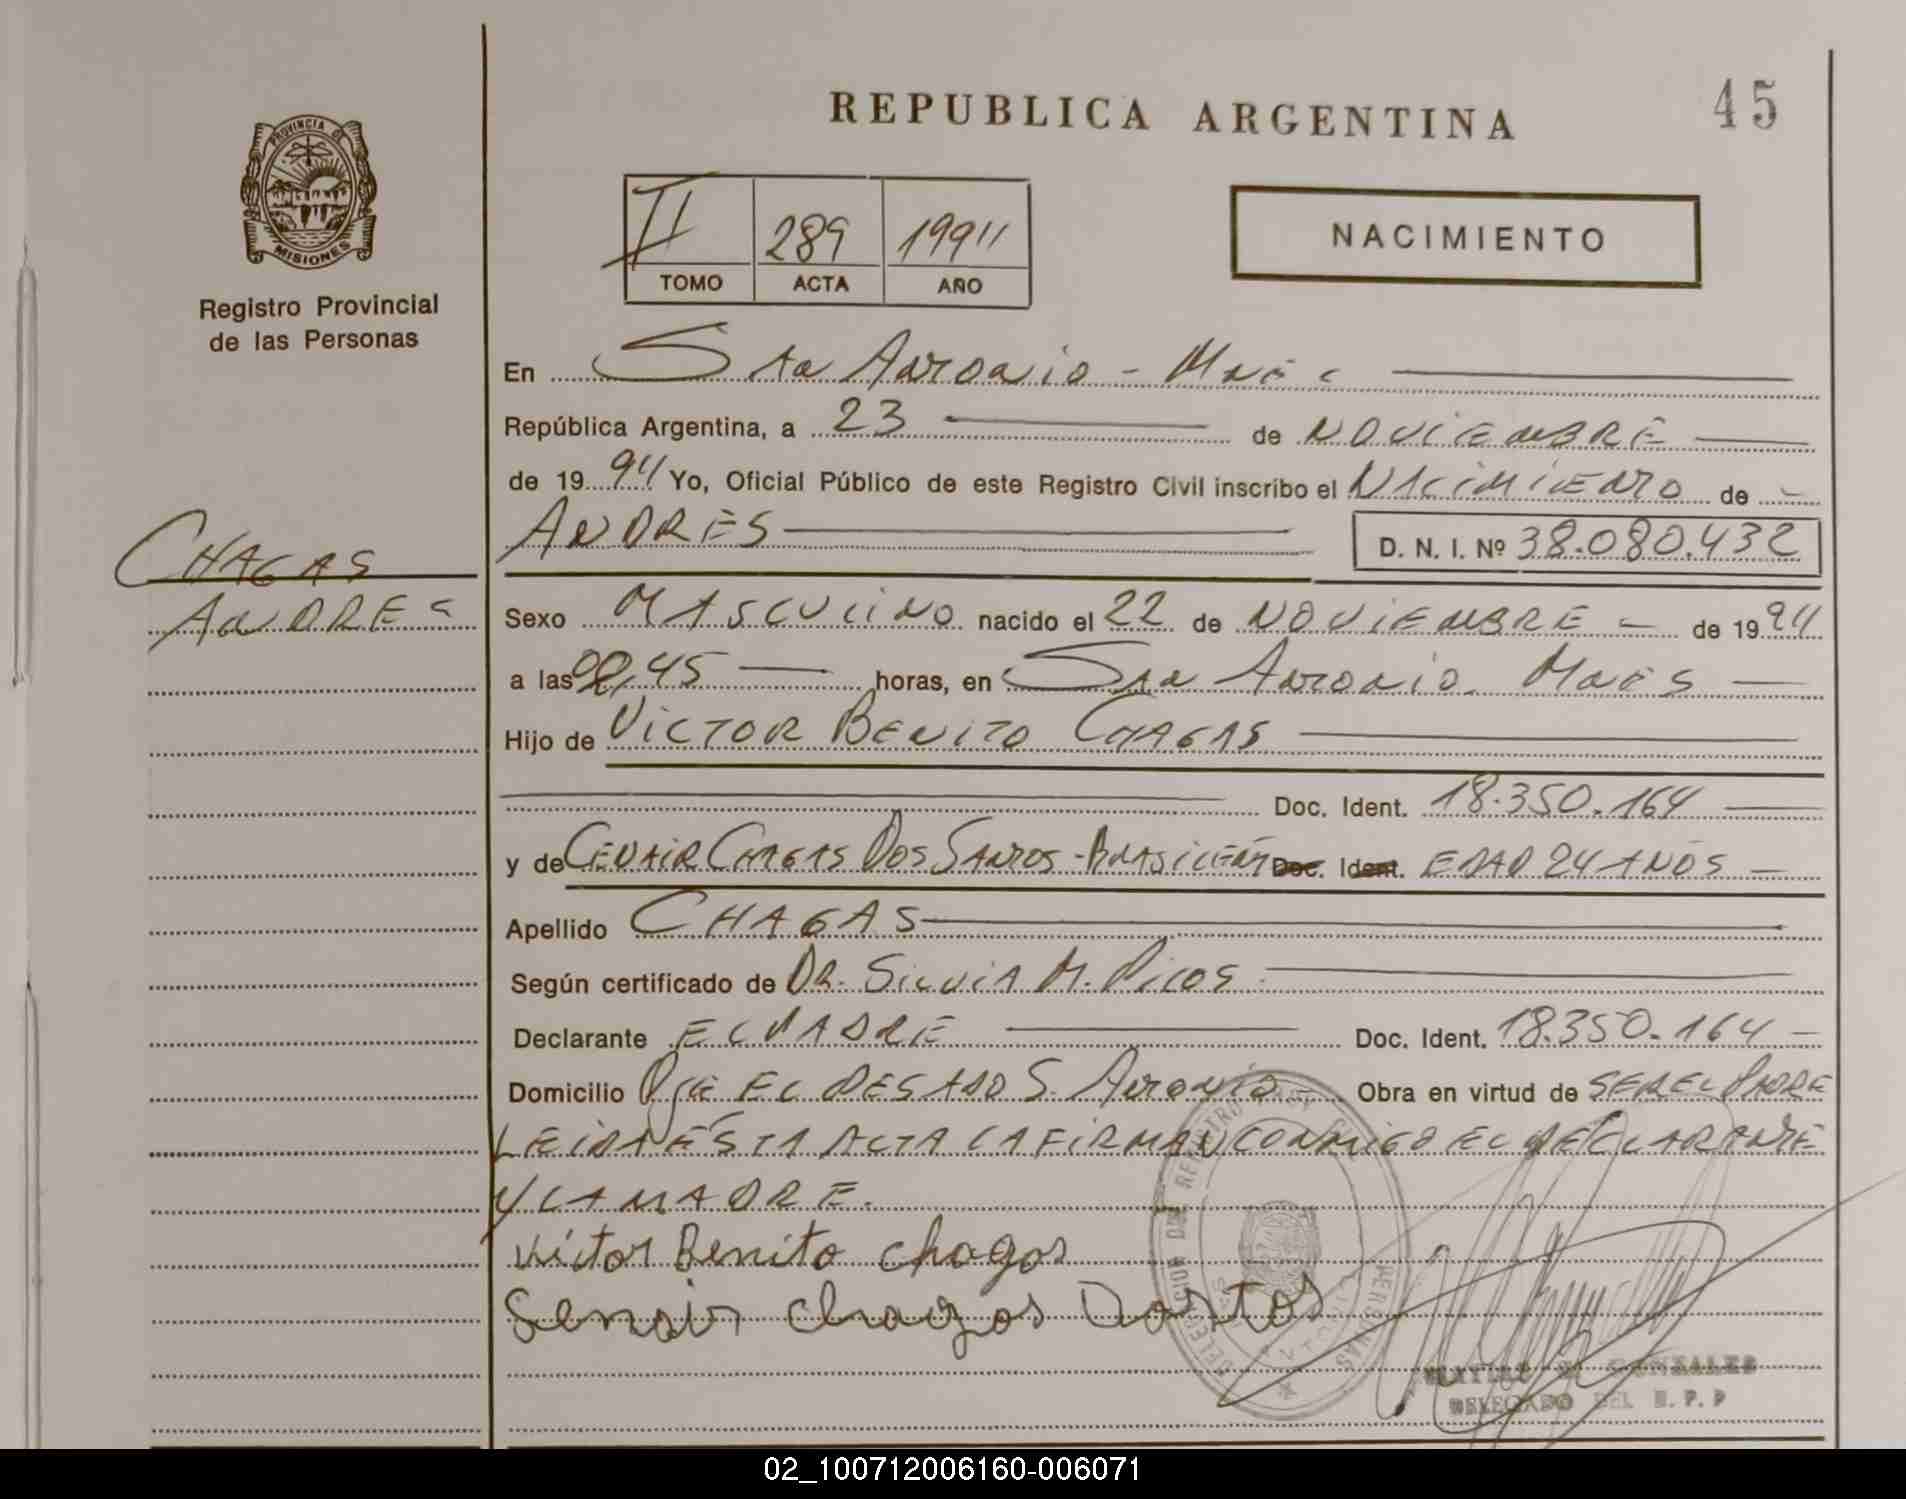 REPUBLICA ARGENTINA
45
PROVINCIA DE
MISIONES
Registro Provincial
de las Personas
II 289 1994
TOMO ACTA AÑO
NACIMIENTO
En Sta Antonio - Mnes
República Argentina, a 23 de NOVIEMBRE
de 1994 Yo, Oficial Público de este Registro Civil inscribo el NACIMIENTO de
ANDRES
D. N. I. Nº 38.080.432
CHAGAS
ANDRES
Sexo MASCULINO nacido el 22 de NOVIEMBRE de 1994
a las ,45 horas, en Sta Antonio. Mnes
Hijo de VICTOR BENITO CHAGAS
Doc. Ident. 18.350.164
y de CENAIR CHAGAS DOS SANTOS - BRASILEÑA Doc. Ident. EDAD 24 AÑOS
Apellido CHAGAS
Según certificado de DR. SILVIA M.
Declarante EL PADRE Doc. Ident. 18.350.164
Domicilio EL DESEADO S. Antonio Obra en virtud de SER EL PADRE
LEIDA ÉSTA ACTA LA FIRMAN CONMIGO EL DECLARANTE
Y LA MADRE.
Victor Benito chagas
Senair chagas
DELEGACION DEL REGISTRO
PERSONAS
GONZALES
DELEGADO DEL R. P. P
02_100712006160-006071